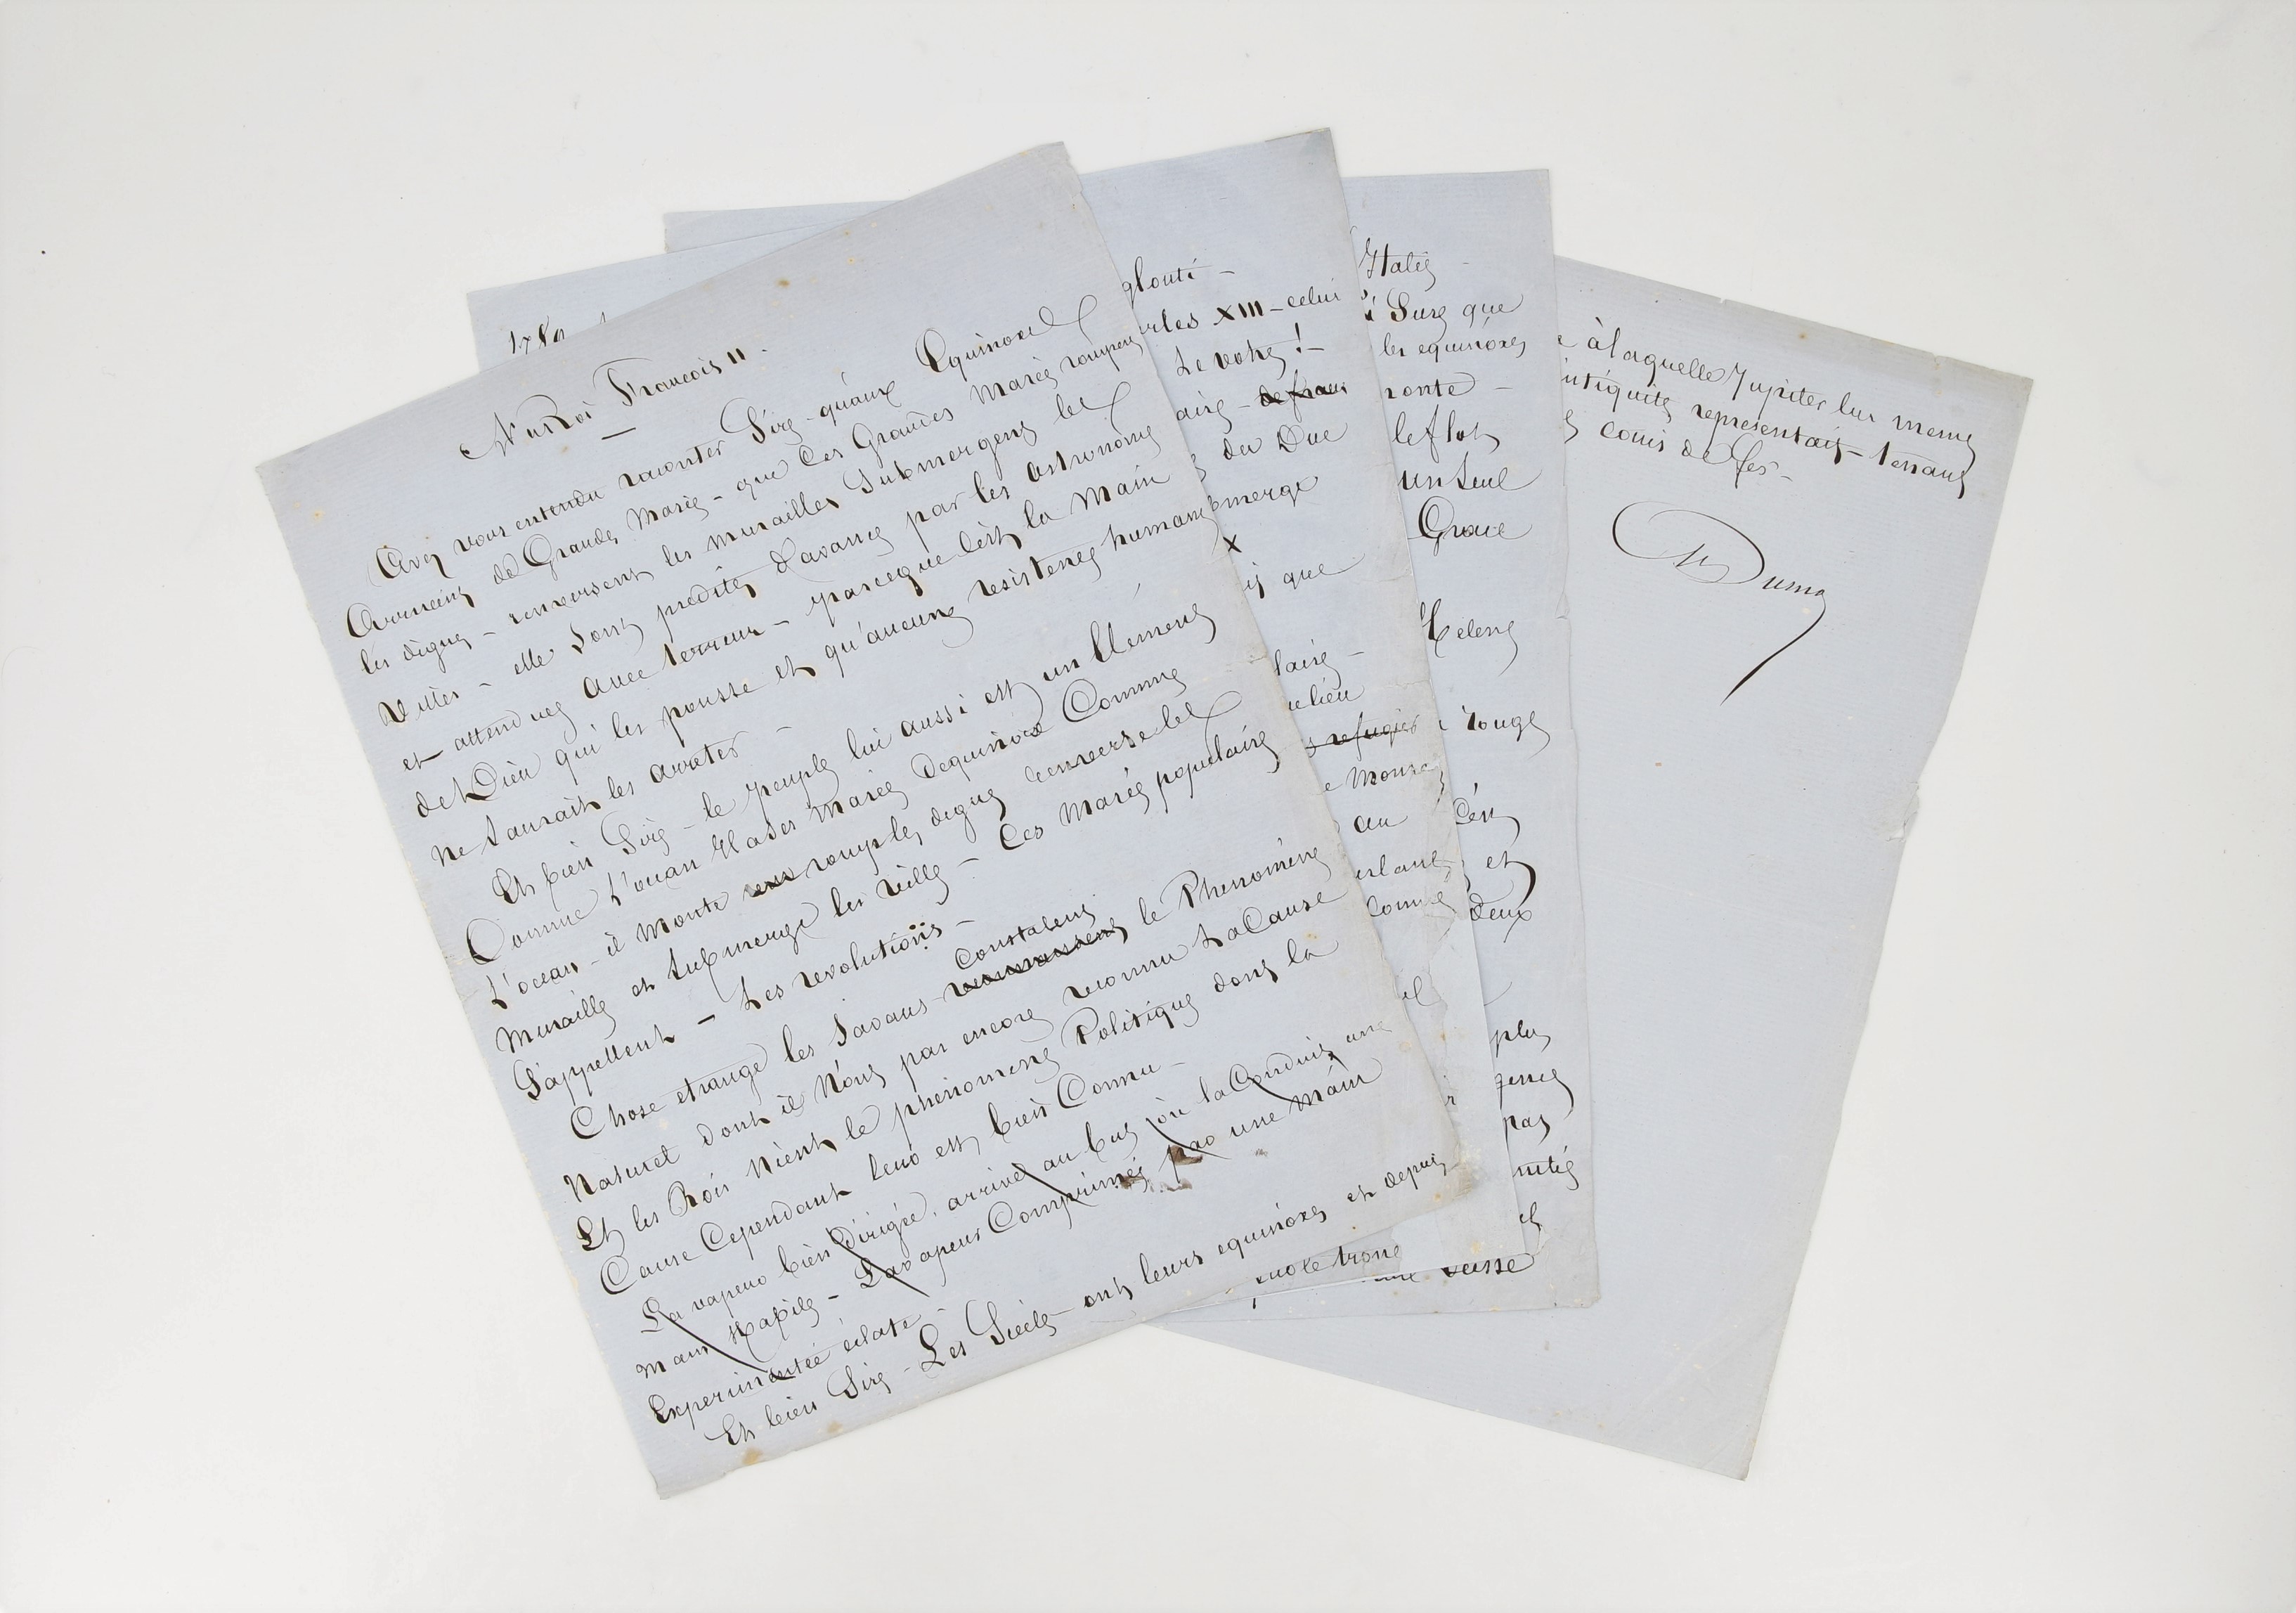 Au Roi François II.
Avez vous entendu raconter Sire - qu'aux Equinoxes
arrivent de Grandes Marées - que ces Grandes Marées rompent
les digues - renversent les murailles submergent les
villes - elles sont predites d'avance par les astronomes
et attendues avec terreur - parceque c'est la Main
de Dieu qui les pousse et qu'aucune resistence humaine
ne saurait les arreter -
Eh bien Sire - le peuple lui aussi est un Element
Comme l'ocean Il a ses Marées d'equinoxe Comme
l'ocean - il monte rompt les digues renverse les
Murailles et submerge les villes - Ces Marées populaires
s'appellent - Les revolutions -
Constatent
Chose etrange les Savans le Phenomène
Naturel dont ils n'ont pas encore reconnu la Cause
Et les Rois nient le phénomène Politique dont la
Cause Cependant leur est bien Connue -
La vapeur bien dirigée, arrive au but où la Conduit une
main habile - La vapeur Comprimée par une main
Experimentée éclate -
Eh bien Sire - Les Siècles ont leurs equinoxes et depuis
glouti -
rles XIII - celui
Le votre ! -
aire -
du Duc
merge
x
que
laire -
ulieu
refugier
au
sur le trone
Italie -
Sure que
les equinoxes
monte -
le flot
un seul
Grave
Helene
rouge
Cent
et
deux
plus
pas
à laquelle Jupiter lui meme
ntiquité representait - tenant
couis de fer -
A Dumas